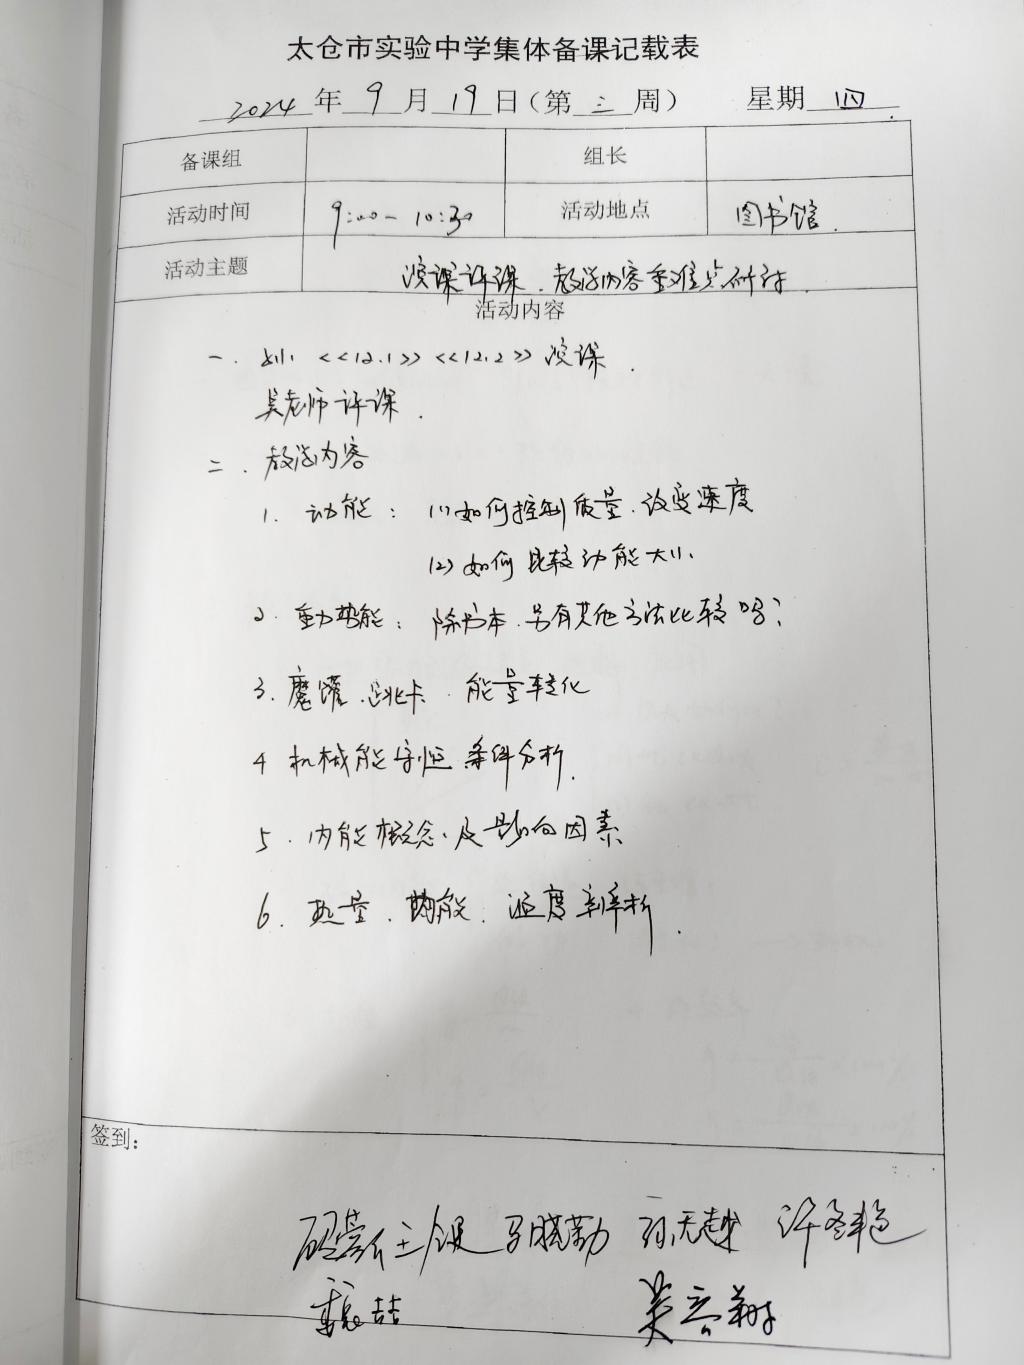 太仓市实验中学集体备课记载表
2024 年 9 月 19 日（第 三 周） 星期 四
备课组 组长
活动时间 9:00 - 10:30 活动地点 图书馆
活动主题 演课评课、教学内容重难点研讨
活动内容
一、 <<12.1>> <<12.2>> 演课.
吴老师评课.
二、教学内容
1. 动能： (1) 如何控制质量、改变速度
(2) 如何比较动能大小.
2. 重力势能： 除书本、另有其他方法比较吗？
3. 魔罐、过山卡、能量转化
4 机械能守恒条件分析.
5. 内能概念、及影响因素
6. 热量、内能、温度辨析.
签到：
马晓勤 孙天越 许冬艳
魏喆